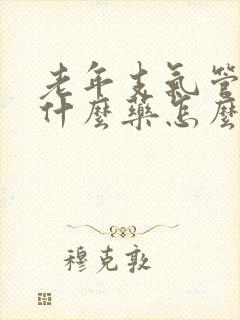 老年支氣管
什麼藥怎麼
穆克敦